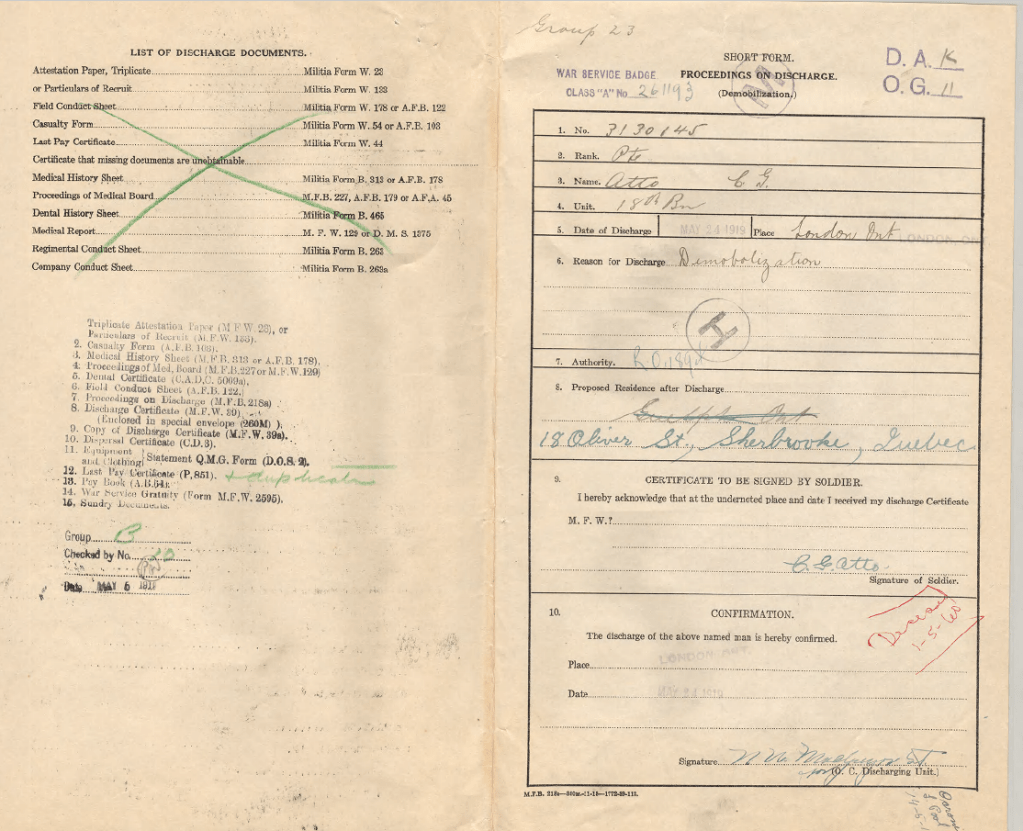 LIST OF DISCHARGE DOCUMENTS.
Attestation Paper, Triplicate Militia Form W. 23
or Particulars of Recruit Militia Form W. 133
Field Conduct Sheet Militia Form W. 178 or A.F.B. 122
Casualty Form Militia Form W. 54 or A.F.B. 103
Last Pay Certificate Militia Form W. 44
Certificate that missing documents are unobtainable
Medical History Sheet Militia Form B. 313 or A.F.B. 178
Proceedings of Medical Board M.F.B. 227, A.F.B. 179 or A.F.A. 45
Dental History Sheet Militia Form B. 465
Medical Report M. F. W. 129 or D. M. S. 1375
Regimental Conduct Sheet Militia Form B. 263
Company Conduct Sheet Militia Form B. 263a
Triplicate Attestation Paper (M.F.W. 23), or
Particulars of Recruit (M.F.W. 133).
2. Casualty Form (A.F.B. 103).
3. Medical History Sheet (M.F.B. 313 or A.F.B. 178).
4. Proceedings of Med. Board (M.F.B. 227 or M.F.W. 129)
5. Dental Certificate (C.A.D.C. 5009a).
6. Field Conduct Sheet (A.F.B. 122.
7. Proceedings on Discharge (M.F.B. 218a)
8. Discharge Certificate (M.F.W. 39).
(Enclosed in special envelope (260M) ).
9. Copy of Discharge Certificate (M.F.W. 39a).
10. Dispersal Certificate (C.D.3).
11. Equipment and Clothing} Statement Q.M.G. Form (D.O.S. 2).
12. Last Pay Certificate (P.851). + duplicate
13. Pay Book (A.B.64).
14. War Service Gratuity (Form M.F.W. 2595).
15. Sundry Documents.
Group B
Checked by No. 20
Date MAY 6 1919
Group 23
SHORT FORM.
WAR SERVICE BADGE
CLASS "A" No 261193
PROCEEDINGS ON DISCHARGE.
(Demobilization.)
D. A. K
O. G. 11
1. No. 3130145
2. Rank. Pte
3. Name. Atto C. G.
4. Unit. 18th Bn
5. Date of Discharge MAY 24 1919 Place London Ont LONDON, ONT.
6. Reason for Discharge Dimobolization
H
7. Authority. R.O. 1894
8. Proposed Residence after Discharge
Guelph Ont
18 Oliver St., Sherbrooke, Quebec
9. CERTIFICATE TO BE SIGNED BY SOLDIER.
I hereby acknowledge that at the undernoted place and date I received my discharge Certificate
M. F. W.?
C. G. Atto
Signature of Soldier.
10. CONFIRMATION.
The discharge of the above named man is hereby confirmed.
Deceased
1-5-60
Place LONDON, ONT.
Date MAY 24 1919
Signature
(O. C. Discharging Unit.)